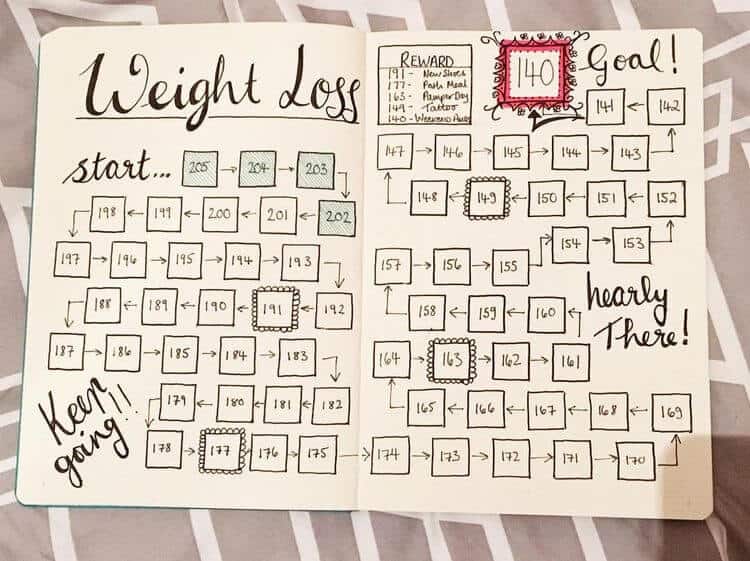 Weight Loss
start... 205 204 203
198 199 200 201 202
197 196 195 194 193
188 189 190 191 192
187 186 185 184 183
179 180 181 182
Keep
going!!
178 177 176 175
REWARD
191 - New Shoes
177 - Meal
163 - Pamper Day
149 - Tattoo
140 - Weekend Away
140
Goal!
141 142
147 146 145 144 143
148 149 150 151 152
154 153
157 156 155
nearly
There!
158 159 160
164 163 162 161
165 166 167 168 169
174 173 172 171 170